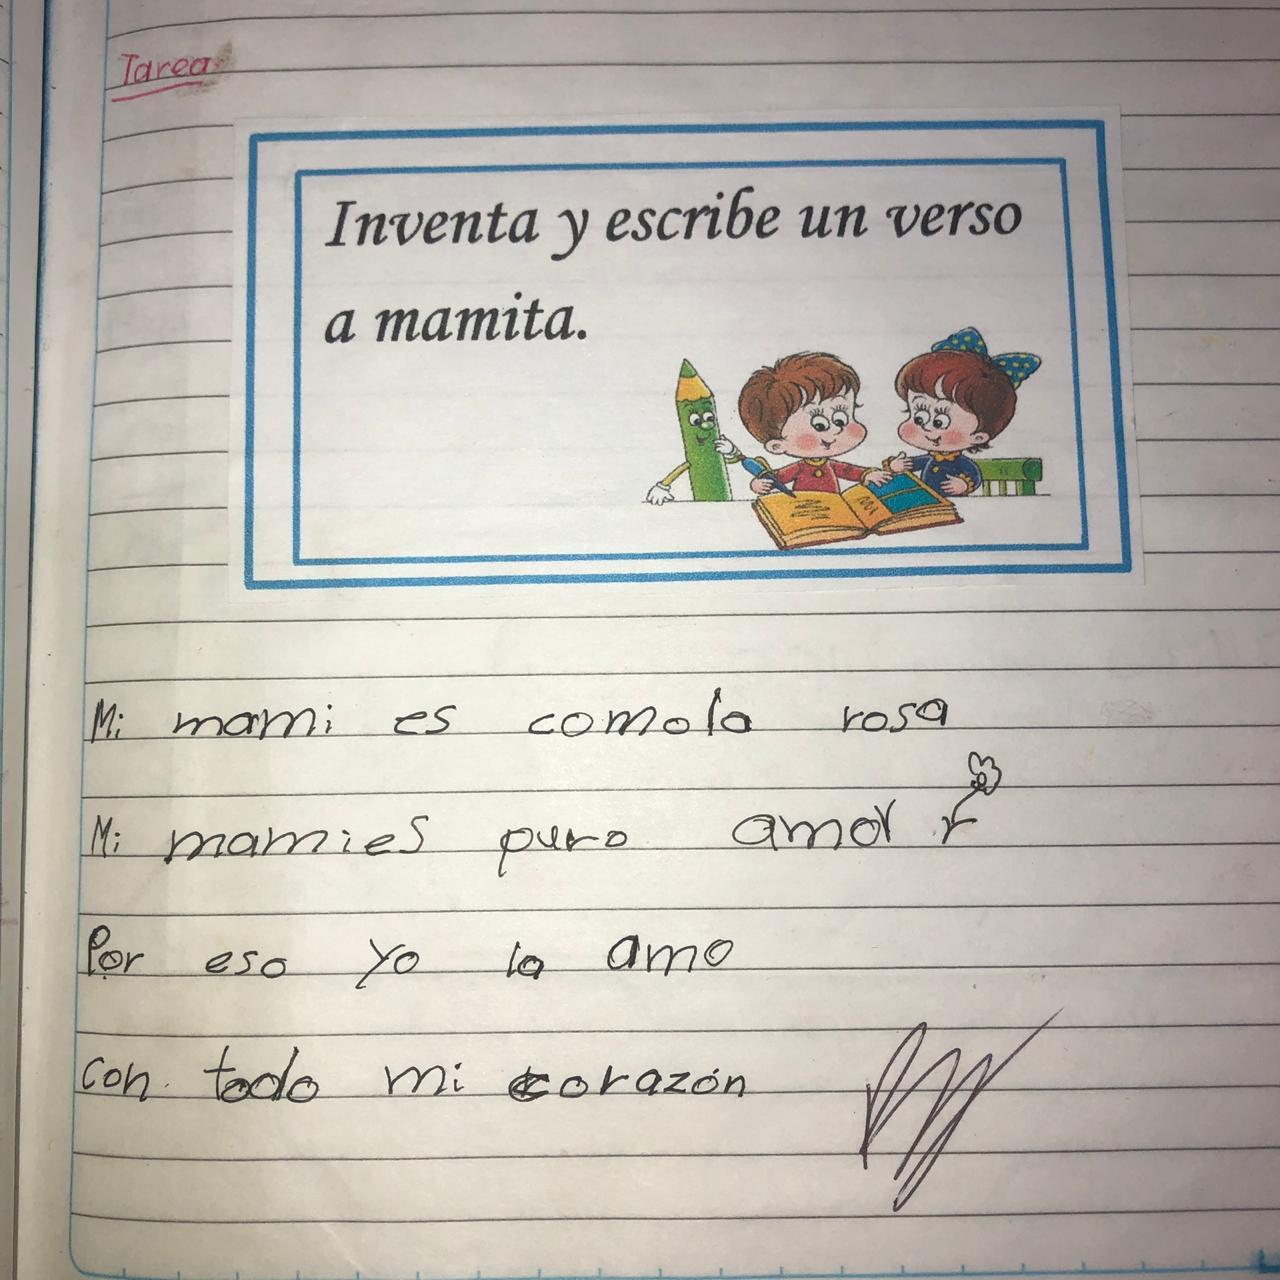 Tarea
Inventa y escribe un verso
a mamita.
Mi mami es comola rosa
Mi mamies puro amor r
Por eso yo la amo
con todo mi corazón